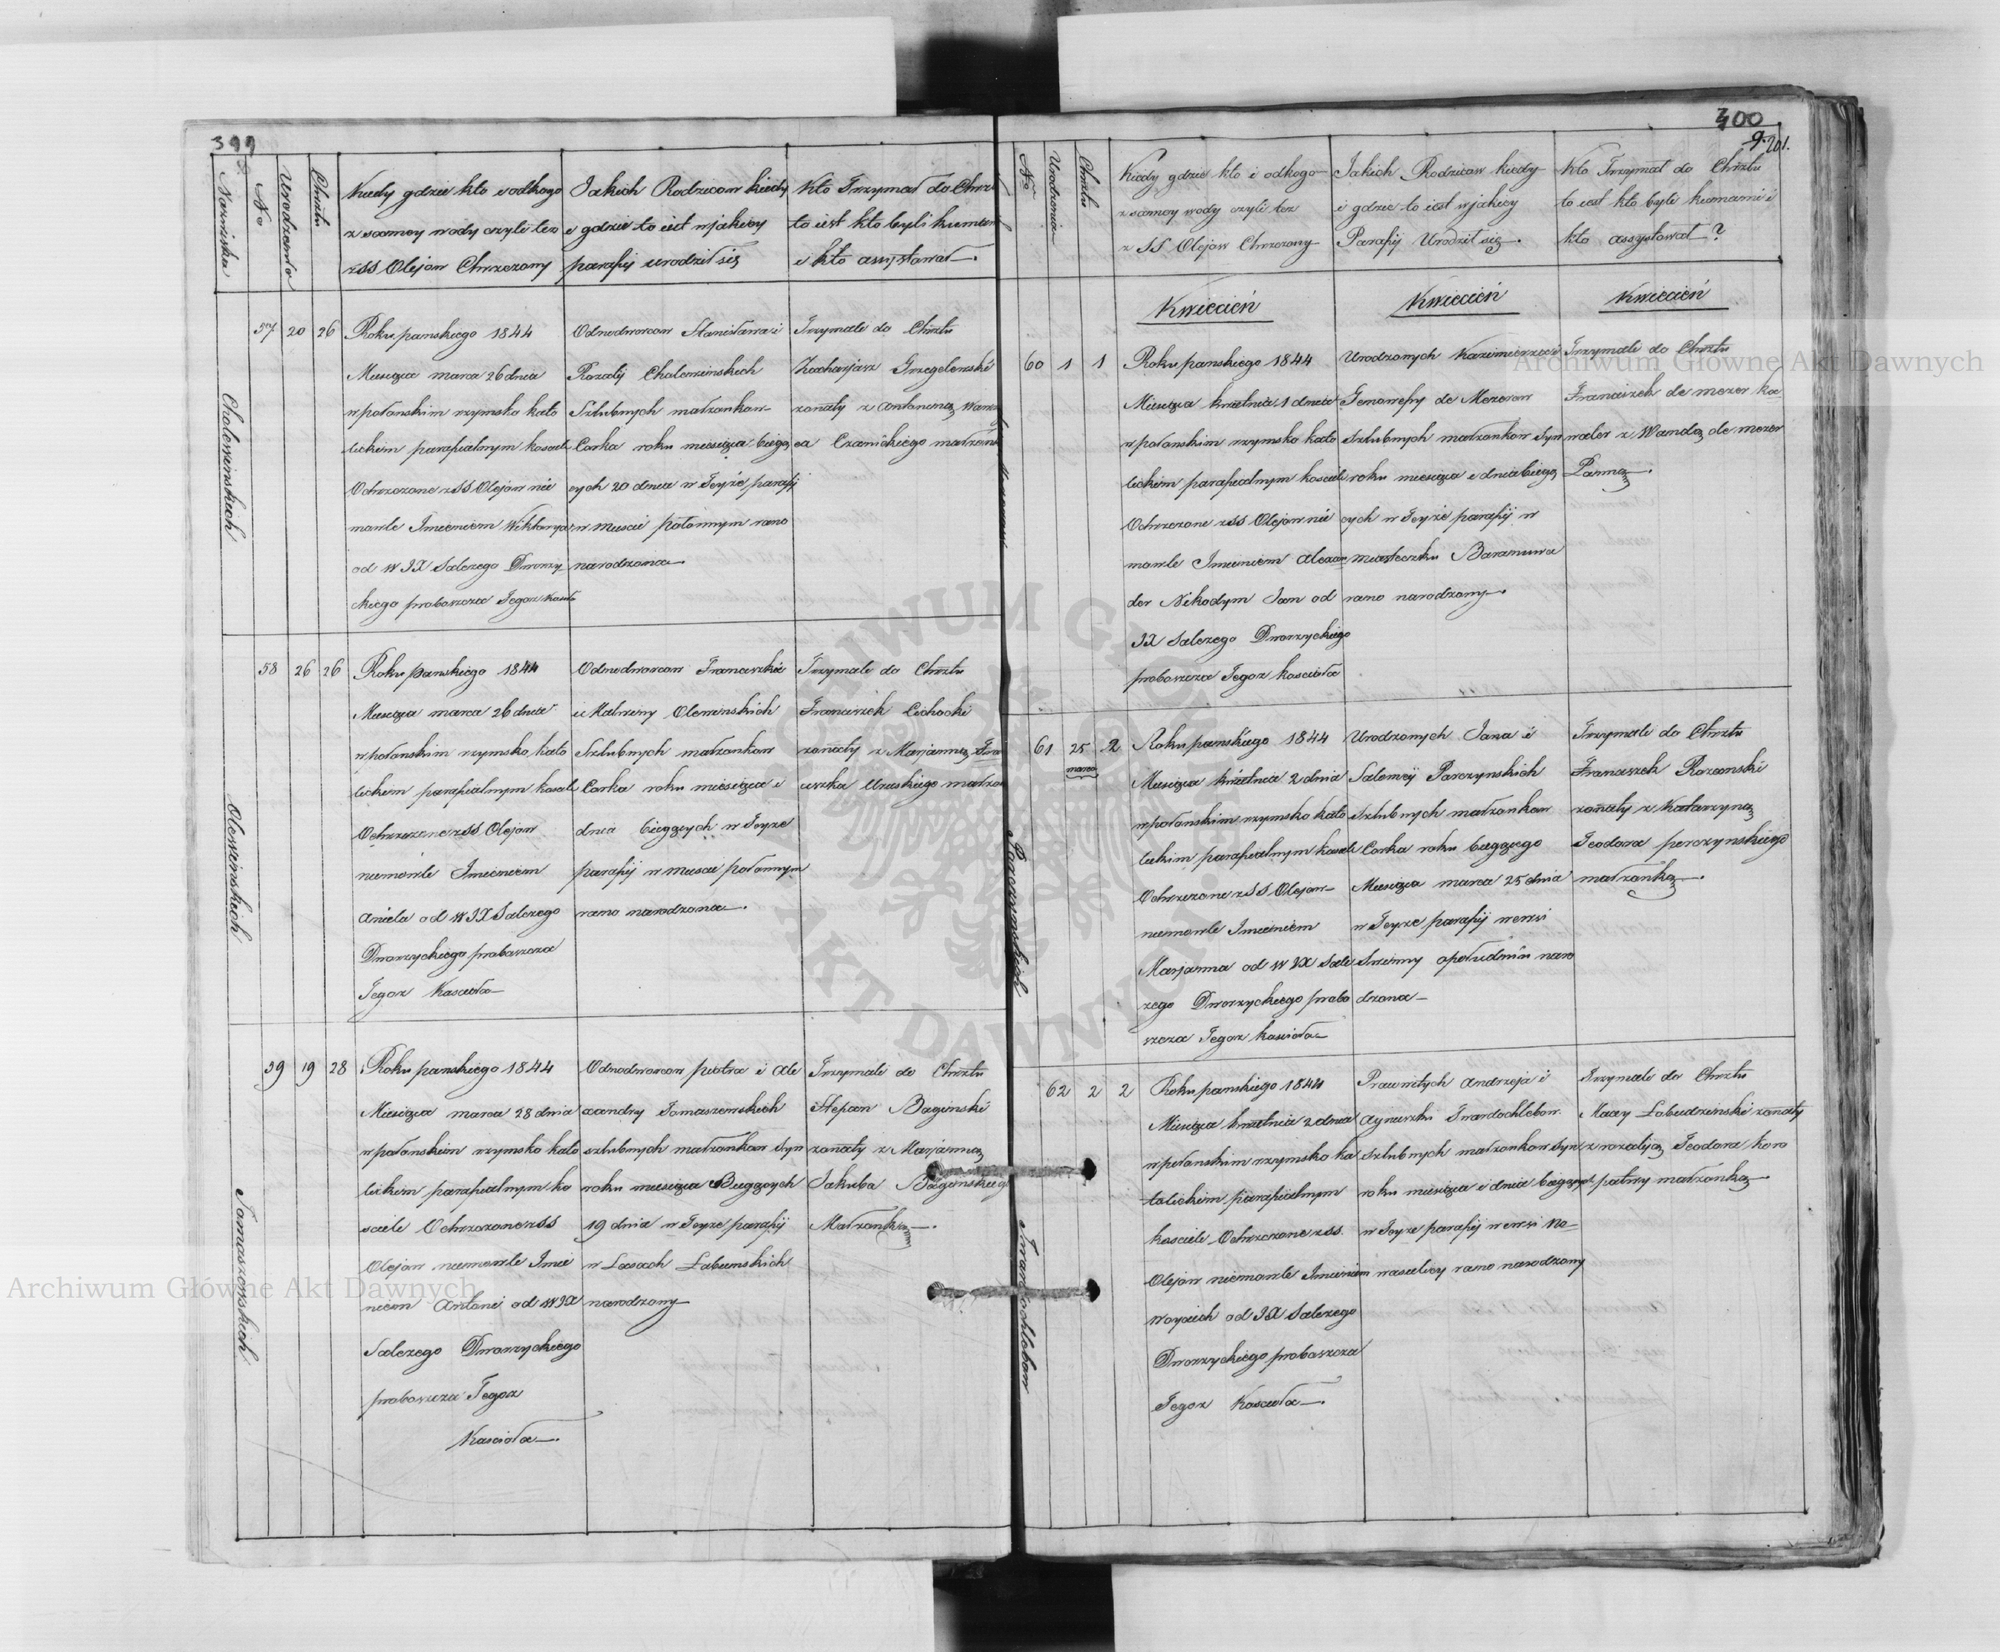 399
Nazwiska
No
Urodzenia
Chrztu
Kiedy gdzie kto i odkogo
z samey wody czyli tez
z SS Olejow Chrzczony
Jakich Rodzicow kiedy
i gdzie to iest wjakiey
parafij urodził się
Kto Trzymał do Chrztu
to iest kto byli kumami
i kto assystował
Chalecinskich
57 20 26
Roku panskiego 1844
Miesiąca marca 26 dnia
w połonskim rzymsko kato
lickim parafialnym kosciele
Ochrzczone z SS Olejow nie
mowle Imieniem Wiktorya
od W JX Salezego Dworzy
ckiego proboszcza Tegoz Koscioła
Odnodworcow Stanisława i
Rozalij Chalecinskich
Szlubnych małzonkow
Corka roku miesiąca bieżą
cych 20 dnia w Teyże parafij
w miescie połonnym rano
narodzona
Trzymali do Chrztu
Zacharjasz Grzegolewski
zonaty z Antoniną Waw
ca Czarnickiego małzonk
Olewinskich
58 26 26
Roku panskiego 1844
Miesiąca marca 26 dnia
w połonskim rzymsko kato
lickim parafialnym koscieli
Ochrzczone z SS Olejow
niemowle Imieniem
Aniela od W JX Salezego
Dworzyckiego proboszcza
Tegoz Koscioła
Odnodworcow Franciszka
i Kalxeny Olewinskich
Szlubnych małzonkow
Corka roku miesiąca i
dnia bieżących w Teyze
parafij w miescie połonnym
rano narodzona
Trzymali do Chrztu
Franciszek Cichocki
zonaty z Marjanną Fran
ciszka Uruskiego małzon
Tomaszewskich
59 19 28
Roku panskiego 1844
Miesiąca marca 28 dnia
w połonskim rzymsko kato
lickim parafialnym ko
sciele Ochrzczone z SS
Olejow niemowle Imie
niem Antoni od W JX
Salezego Dworzyckiego
proboszcza Tegoz
Koscioła
Odnodworcow piotra i Ale
xandry Tomaszewskich
szlubnych małzonkow Syn
roku miesiąca Bieżących
19 dnia w Teyze parafij
w Lasach Łabunskich
narodzony
Trzymali do Chrztu
Stepan Baginski
zonaty z Marjanną
Jakuba Baginskiego
Małzonką
400
201.
No
Urodzenia
Chrztu
Kiedy gdzie kto i odkogo
z samey wody czyli tez
z SS Olejow Chrzczony
Jakich Rodzicow kiedy
i gdzie to iest wjakiey
Parafij Urodził się
Kto Trzymał do Chrztu
to iest kto byli kumami i
kto assystował?
Kwiecień
Kwiecień
Kwiecień
60 1 1
Roku panskiego 1844
Miesiąca kwietnia 1 dnia
w połonskim rzymsko kato
lickim parafialnym kosciele
Ochrzczone z SS Olejow nie
mowle Imieniem Alexan
der Nikodym Jan od
JX Salezego Dworzyckiego
proboszcza Tegoz koscioła
Urodzonych Kazimierza i
Genowefy de Mezerow
Szlubnych małzonkow Syn
roku miesiąca i dnia bieżą
cych w Teyże parafij w
miasteczku Baranuwa
rano narodzony
Trzymali do Chrztu
Franciszek de mezer ka
waler z Wandą de mezer
Panną
Parczynskich
61 25 2
marca
Roku panskiego 1844
Miesiąca kwietnia 2 dnia
w połonskim rzymsko kato
lickim parafialnym kosciele
Ochrzczone z SS Olejow
niemowle Imieniem
Marjanna od W JX Sale
zego Dworzyckiego probo
szcza Tegoz koscioła
Urodzonych Jana i
Salomeij Parczynskich
Szlubnych małzonkow
Corka roku bieżącego
Miesiąca marca 25 dnia
w Teyze parafij w wsi
Sniezny opołudniu naro
dzona
Trzymali do Chrztu
Franciszek Rozcanski
zonaty z Katarzyną
Teodora perczynskiego
małzonką
Twardochlebow
62 2 2
Roku panskiego 1844
Miesiąca kwietnia 2 dnia
w połonskim rzymsko ka
tolickim parafialnym
kosciele Ochrzczone z SS.
Olejow niemowle Imieniem
Woyciech od JX Salezego
Dworzyckiego proboszcza
Tegoz Koscioła
Pracowitych Andrzeja i
Agnieszki Twardochlebow
Szlubnych małzonkow Syn
roku miesiąca i dnia bieżących
w Teyze parafij w wsi No
wasielicy rano narodzony
Trzymali do Chrztu
Maciey Łabudzinski zonaty
z rozalyą Teodora koro
patwy małzonką
Archiwum Główne Akt Dawnych
Archiwum Główne Akt Dawnych
ARCHIWUM GŁÓWNE AKT DAWNYCH